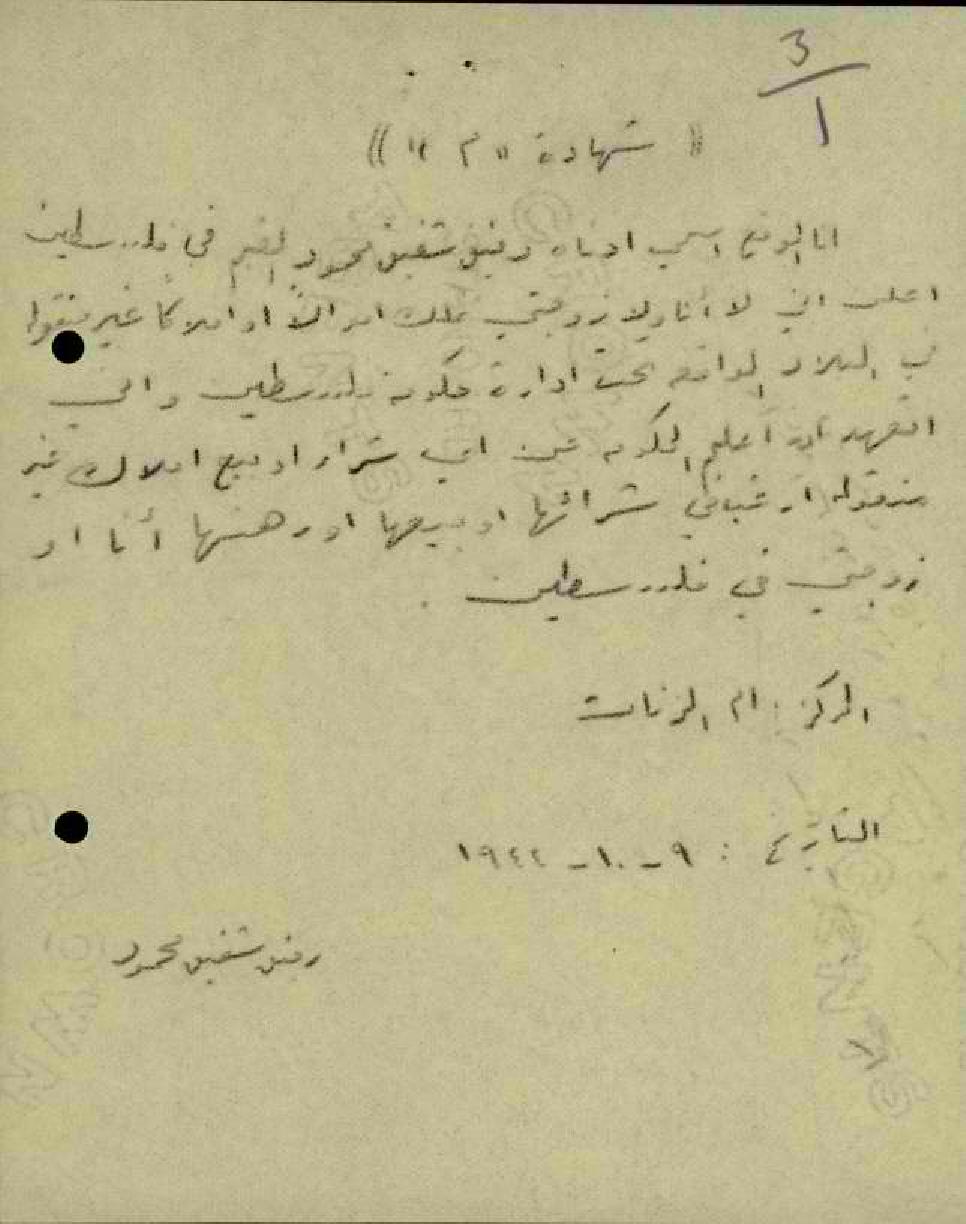 3
1
(( شهادة " م " ))
انا الموقع اسمي ادناه رفيق شفيق محمود المقيم في فلسطين
اعلن اني لا أنا ولا زوجتي نملك اموالاً او املاكاً غير منقولة
في البلاد الواقعة تحت ادارة حكومة فلسطين واني
اتعهد بأن أعلم الحكومة عن اي شراء او بيع املاك غير
منقولة ارغب في شرائها او بيعها او رهنها أنا او
زوجتي في فلسطين .
المركز : ام الزينات
التاريخ : ٩ - ١٠ - ١٩٤٢
رفيق شفيق محمود